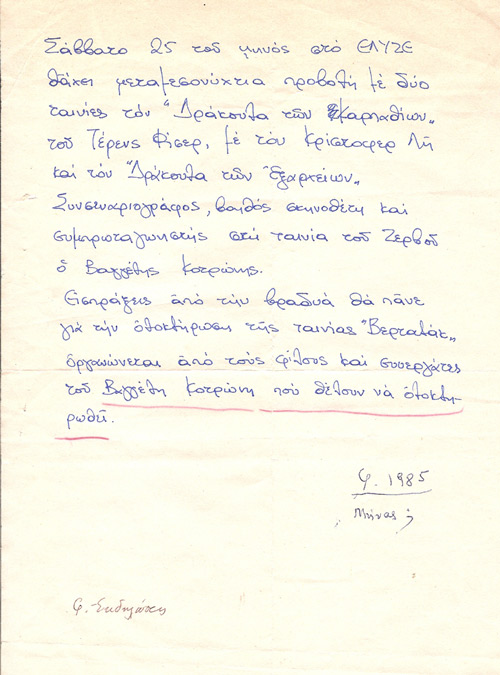 Σάββατο 25 τοῦ μηνός στό ΕΛΥΖΕ
θἄχει μεταμεσονύχτια προβολή μέ δύο
ταινίες τόν "Δράκουλα τῶν Καρπαθίων"
τοῦ Τέρενς Φίσερ, μέ τόν Κρίστοφερ Λή
καί τόν "Δράκουλα τῶν Ἐξαρχείων"
Συνσεναριογράφος, βοηθός σκηνοθέτη καί
συμπρωταγωνιστής στή ταινία τοῦ Ζερβοῦ
ὁ Βαγγέλης Κοτρώνης.
Εἰσπράξεις ἀπό τήν βραδυά θά πᾶνε
γιά τήν ὁλοκλήρωση τῆς ταινίας "Βερταλάκ"
ὀργανώνεται ἀπό τούς φίλους καί συνεργάτες
τοῦ Βαγγέλη Κοτρώνη πού θέλουν νά ὁλοκλη-
ρωθεῖ.
φ. 1985
Μήνας;